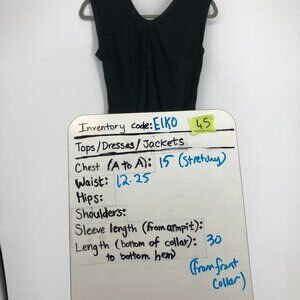 Inventory code: EIKO 45
Tops/Dresses/Jackets
Chest (A to A): 15 (stretchy)
Waist: 12.25
Hips:
Shoulders:
Sleeve length (from armpit):
Length (bottom of collar): 30
to bottom hem)
(from front
collar)